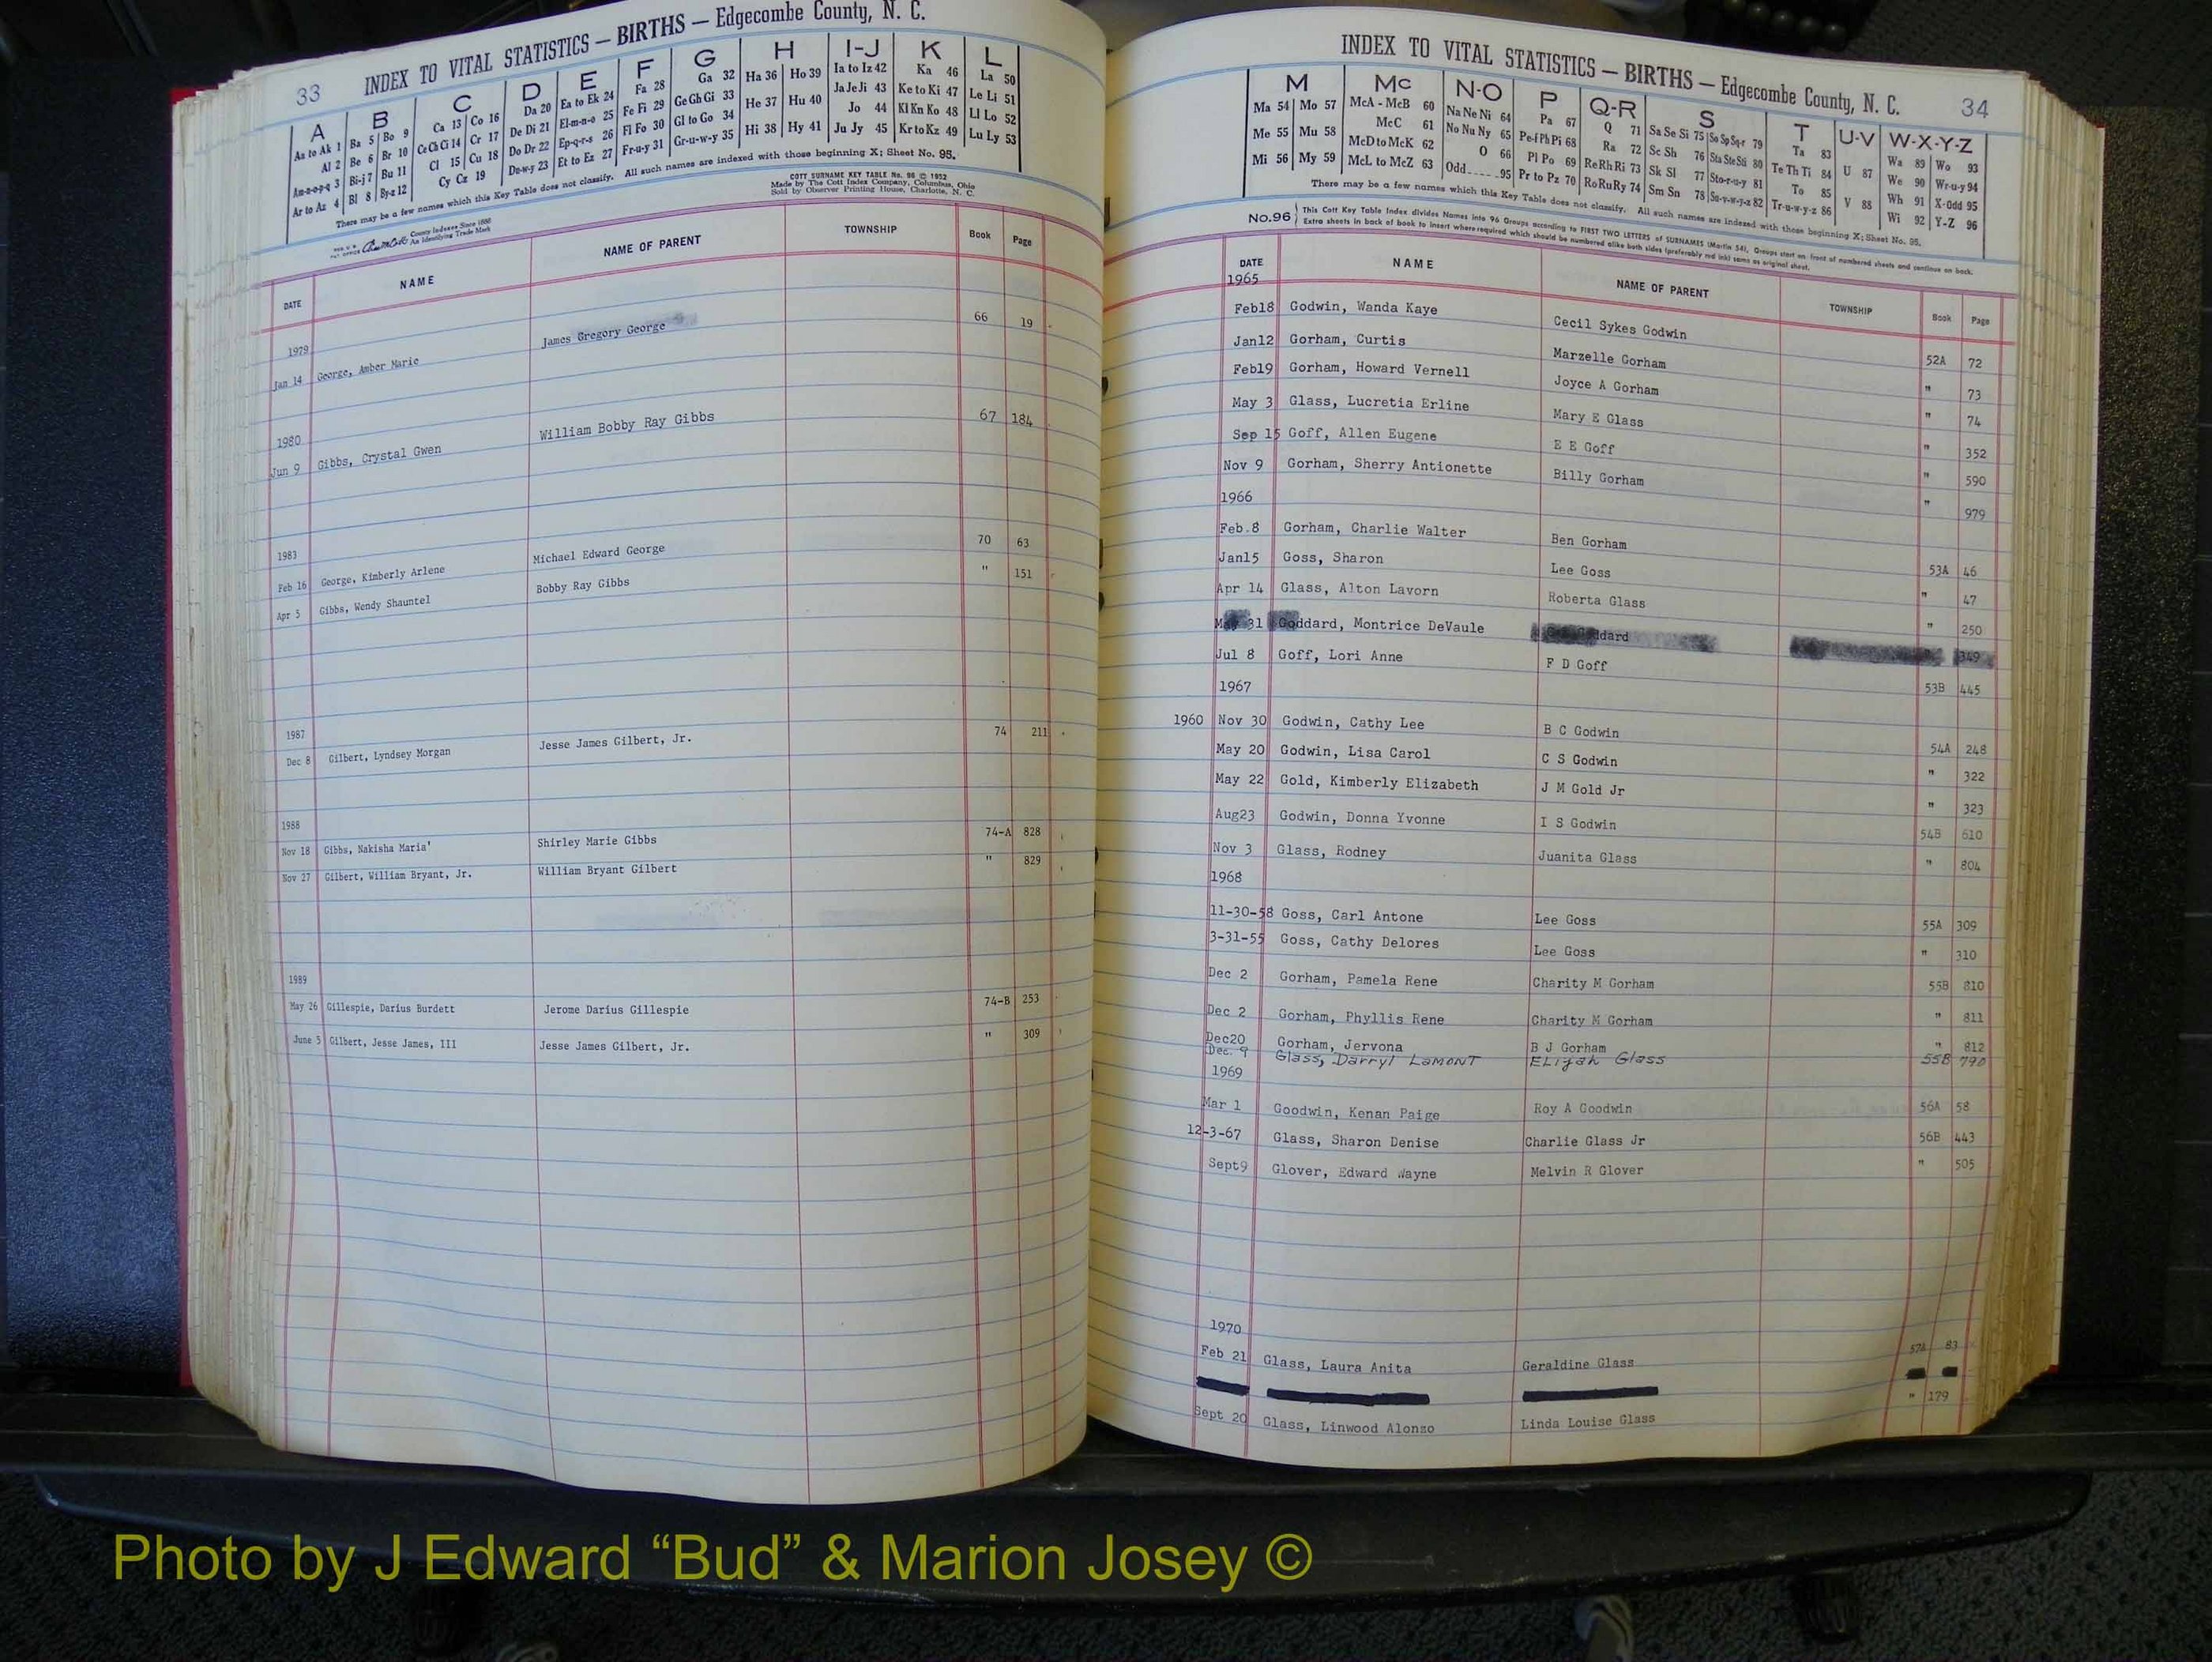 33 INDEX TO VITAL STATISTICS — BIRTHS — Edgecombe County, N. C.
A B C D E F G H I-J K L
Aa to Ak 1 Ba 5 Bo 9 Ca 13 Co 16 Da 20 Ea to Ek 24 Fa 28 Ga 32 Ha 36 Ho 39 Ia to Iz 42 Ka 46 La 50
Al 2 Be 6 Br 10 Ce Ch Ci 14 Cr 17 De Di 21 El-m-n-o 25 Fe Fi 29 Ge Gh Gi 33 He 37 Hu 40 Ja Je Ji 43 Ke to Ki 47 Le Li 51
Am-n-o-p-q 3 Bi-j 7 Bu 11 Cl 15 Cu 18 Do Dr 22 Ep-q-r-s 26 Fl Fo 30 Gl to Go 34 Hi 38 Hy 41 Jo 44 Kl Kn Ko 48 Ll Lo 52
Ar to Az 4 Bl 8 By-z 12 Cy Cz 19 Du-w-y 23 Et to Ez 27 Fr-u-y 31 Gr-u-w-y 35 Ju Jy 45 Kr to Kz 49 Lu Ly 53
There may be a few names which this Key Table does not classify. All such names are indexed with those beginning X; Sheet No. 95.
COTT SURNAME KEY TABLE No. 96 © 1952
Made by The Cott Index Company, Columbus, Ohio
Sold by Observer Printing House, Charlotte, N. C.
County Indexes Since 1888
An Identifying Trade Mark
DATE NAME NAME OF PARENT TOWNSHIP Book Page
1979
Jan 14 George, Amber Marie James Gregory George 66 19
1980
Jun 9 Gibbs, Crystal Gwen William Bobby Ray Gibbs 67 184
1983
Feb 16 George, Kimberly Arlene Michael Edward George 70 63
Apr 5 Gibbs, Wendy Shauntel Bobby Ray Gibbs " 151
1987
Dec 8 Gilbert, Lyndsey Morgan Jesse James Gilbert, Jr. 74 211
1988
Nov 18 Gibbs, Nakisha Maria' Shirley Marie Gibbs 74-A 828
Nov 27 Gilbert, William Bryant, Jr. William Bryant Gilbert " 829
1989
May 26 Gillespie, Darius Burdett Jerome Darius Gillespie 74-B 253
June 5 Gilbert, Jesse James, III Jesse James Gilbert, Jr. " 309
INDEX TO VITAL STATISTICS — BIRTHS — Edgecombe County, N. C. 34
M Mc N-O P Q-R S T U-V W-X-Y-Z
Ma 54 Mo 57 McA - McB 60 Na Ne Ni 64 Pa 67 Q 71 Sa Se Si 75 So Sp Sq-r 79 Ta 83 U 87 Wa 89 Wo 93
Me 55 Mu 58 McC 61 No Nu Ny 65 Pe-f Ph Pi 68 Ra 72 Sc Sh 76 Sta Ste Sti 80 Te Th Ti 84 We 90 Wr-u-y 94
Mi 56 My 59 McD to McK 62 O 66 Pl Po 69 Re Rh Ri 73 Sk Sl 77 Sto-r-u-y 81 To 85 V 88 Wh 91 X-Odd 95
McL to McZ 63 Odd 95 Pr to Pz 70 Ro Ru Ry 74 Sm Sn 78 Su-v-w-y-z 82 Tr-u-w-y-z 86 Wi 92 Y-Z 96
There may be a few names which this Key Table does not classify. All such names are indexed with those beginning X; Sheet No. 95.
No.96 This Cott Key Table Index divides Names into 96 Groups according to FIRST TWO LETTERS of SURNAMES (Martin 54). Groups start on front of numbered sheets and continue on back.
Extra sheets in back of book to insert where required which should be numbered alike both sides (preferably red ink) same as original sheet.
DATE NAME NAME OF PARENT TOWNSHIP Book Page
1965
Feb18 Godwin, Wanda Kaye Cecil Sykes Godwin 52A 72
Jan12 Gorham, Curtis Marzelle Gorham " 73
Feb19 Gorham, Howard Vernell Joyce A Gorham " 74
May 3 Glass, Lucretia Erline Mary E Glass " 352
Sep 15 Goff, Allen Eugene E E Goff " 590
Nov 9 Gorham, Sherry Antionette Billy Gorham " 979
1966
Feb.8 Gorham, Charlie Walter Ben Gorham 53A 46
Jan15 Goss, Sharon Lee Goss " 47
Apr 14 Glass, Alton Lavorn Roberta Glass " 250
May 31 Goddard, Montrice DeVaule 349
Jul 8 Goff, Lori Anne F D Goff 53B 445
1967
1960 Nov 30 Godwin, Cathy Lee B C Godwin 54A 248
May 20 Godwin, Lisa Carol C S Godwin " 322
May 22 Gold, Kimberly Elizabeth J M Gold Jr " 323
Aug23 Godwin, Donna Yvonne I S Godwin 54B 610
Nov 3 Glass, Rodney Juanita Glass " 804
1968
11-30-58 Goss, Carl Antone Lee Goss 55A 309
3-31-55 Goss, Cathy Delores Lee Goss " 310
Dec 2 Gorham, Pamela Rene Charity M Gorham 55B 810
Dec 2 Gorham, Phyllis Rene Charity M Gorham " 811
Dec20 Gorham, Jervona B J Gorham " 812
Dec. 9 Glass, Darryl LaMONT ELijah Glass 55B 790
1969
Mar 1 Goodwin, Kenan Paige Roy A Goodwin 56A 58
12-3-67 Glass, Sharon Denise Charlie Glass Jr 56B 443
Sept9 Glover, Edward Wayne Melvin R Glover " 505
1970
Feb 21 Glass, Laura Anita Geraldine Glass 57A 83
Sept 20 Glass, Linwood Alonzo Linda Louise Glass " 179
Photo by J Edward “Bud” & Marion Josey ©